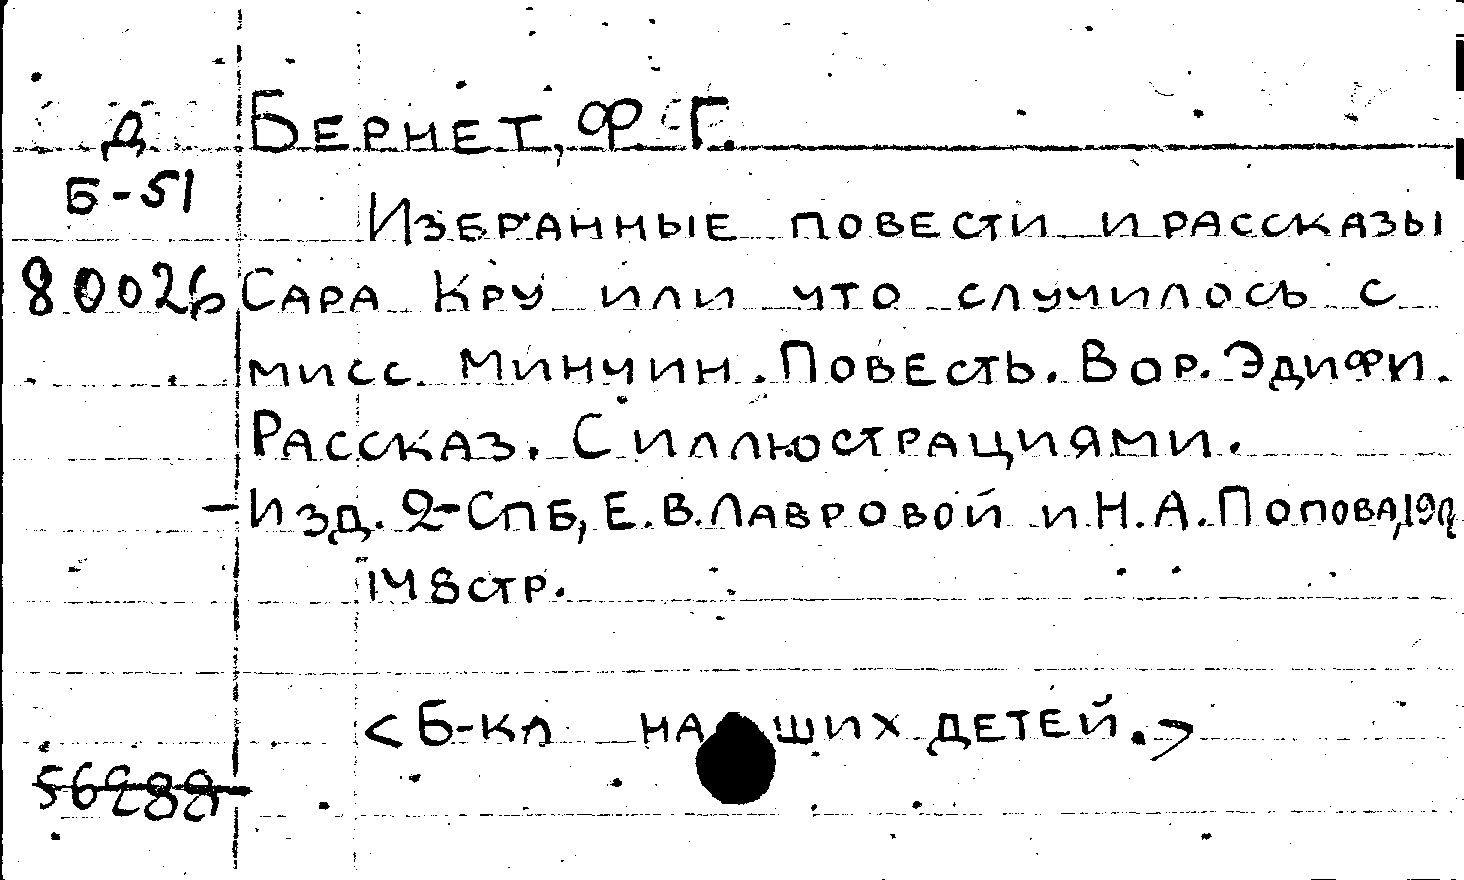 Д БЕРНЕТ, Ф. Г.
Б-51
ИЗБРАННЫЕ ПОВЕСТИ И РАССКАЗЫ
80026 САРА КРУ ИЛИ ЧТО СЛУЧИЛОСЬ С
МИСС МИНЧИН. ПОВЕСТЬ. ВОР. ЭДИФИ.
РАССКАЗ. С ИЛЛЮСТРАЦИЯМИ.
- ИЗД. 2-СПБ, Е.В. ЛАВРОВОЙ И Н.А. ПОПОВА,
148 СТР.
<Б-КА НАШИХ ДЕТЕЙ.>
56288